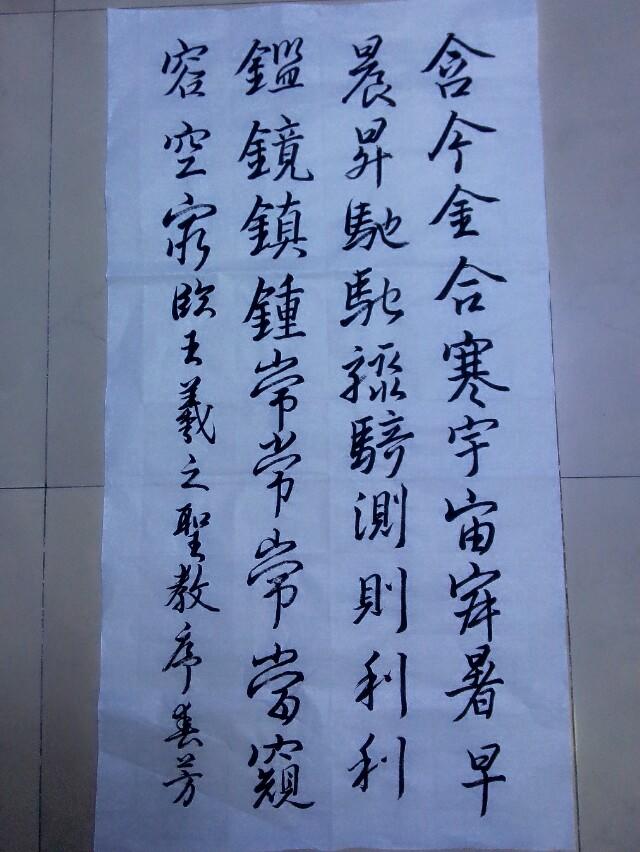 含今金合寒宇宙寂暑早
晨昇馳馳騄騎測則利利
鑑鏡鎮鍾常常常當窺
容空窮臨王羲之聖教序春芳